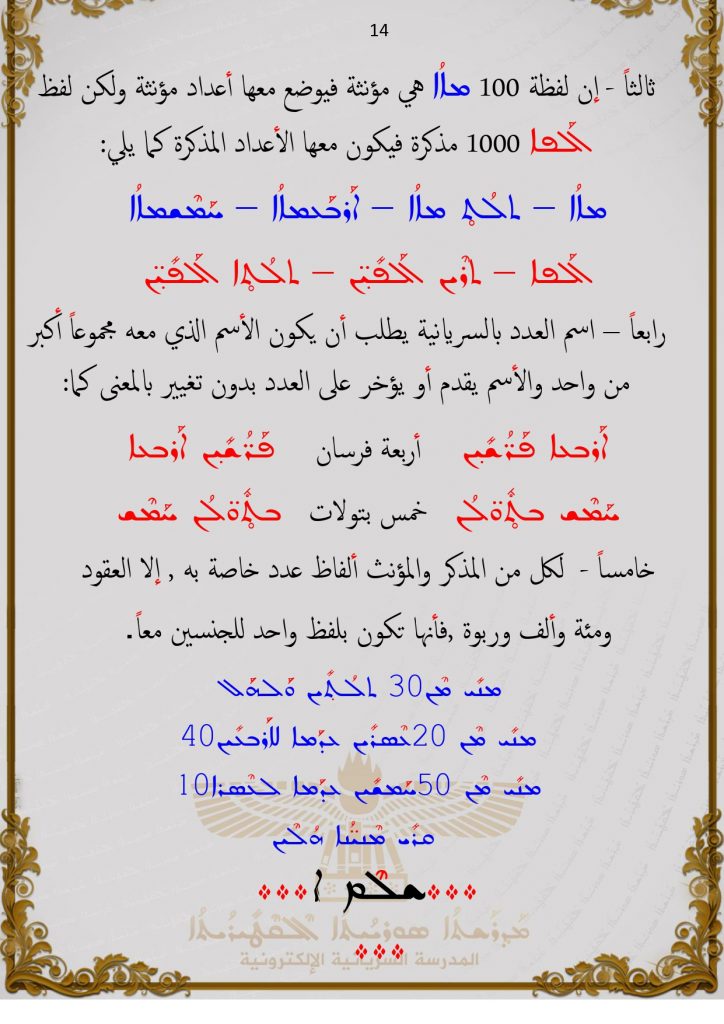 14
ثالثاً - إن لفظة 100 ܡܐܐ هي مؤنثة فيوضع معها أعداد مؤنثة ولكن لفظ
ܐܰܠܦܳܐ 1000 مذكرة فيكون معها الأعداد المذكرة كما يلي:
ܡܐܐ – ܬܠܳܬ ܡܐܐ – ܐܰܪܒܰܥܡܐܐ – ܚܰܡܫܡܐܐ
ܐܰܠܦܐ – ܬܪܶܝܢ ܐܰܠܦܺܝ̈ܢ – ܬܠܳܬܐ ܐܰܠܦܺܝ̈ܢ
رابعاً – اسم العدد بالسريانية يطلب أن يكون الأسم الذي معه مجموعاً أكبر
من واحد والأسم يقدم أو يؤخر على العدد بدون تغيير بالمعنى كما:
ܐܰܪܒܥܐ ܦܰܪ̈ܳܫܺܝܢ أربعة فرسان ܦܰܪ̈ܳܫܺܝܢ ܐܰܪܒܥܐ
ܚܰܡܶܫ ܒܬܽܘ̈ܠܳܢ خمس بتولات ܒܬܽܘ̈ܠܳܢ ܚܰܡܶܫ
خامساً - لكل من المذكر والمؤنث ألفاظ عدد خاصة به , إلا العقود
ومئة وألف وربوة ,فأنها تكون بلفظ واحد للجنسين معاً.
ܡܢܺܝ ܡܶܢ 30 ܬܠܳܬܺܝܢ ܘܰܠܗܰܠ
ܡܢܺܝ ܡܶܢ 20 ܥܶܣܪܺܝܢ ܥܕܰܡܐ ܠܐܰܪܒܥܺܝܢ 40
ܡܢܺܝ ܡܶܢ 50 ܚܰܡܫܺܝܢ ܥܕܰܡܐ ܠܥܶܣܪܐ 10
ܩܪܺܝ ܡܶܢܝܳܢ̈ܐ ܗܳܠܶܝܢ
ܫܠܶܡ
ܡܰܕܪܰܫܬܳܐ ܣܘܪܝܳܝܬܳܐ ܐܶܠܶܩܛܪܘܢܳܝܬܳܐ
المدرسة السريانية الإلكترونية